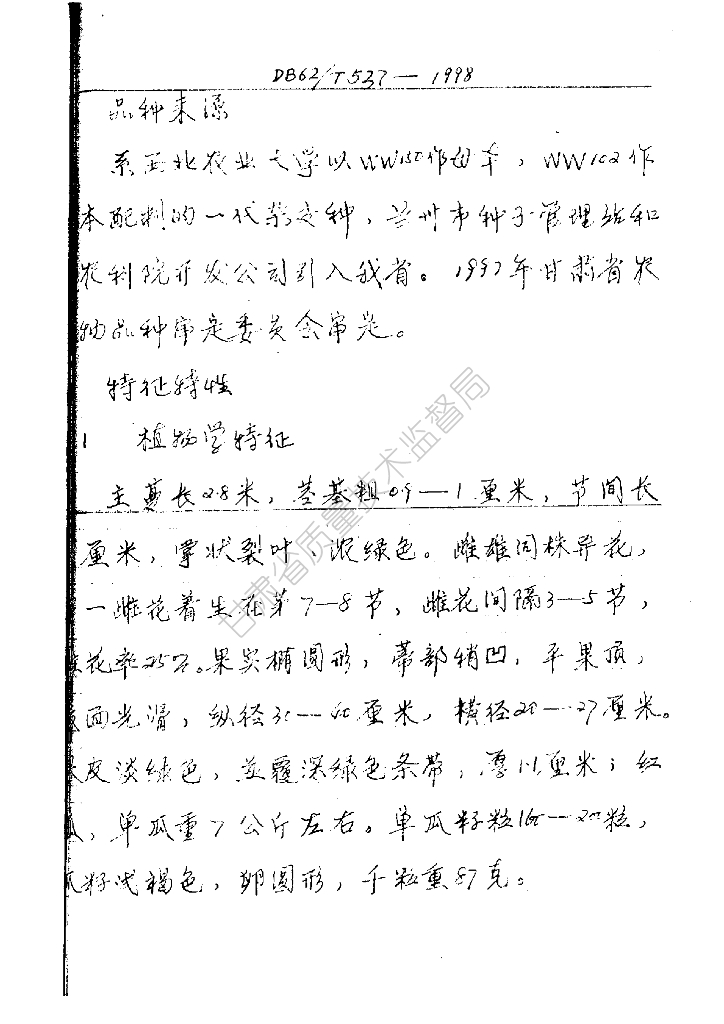 DB62/T537—1998
品种来源
系西北农业大学以WW150作母本，WW102作
本配制的一代杂交种，兰州市种子管理站和
农科院开发公司引入我省。1997年甘肃省农
物品种审定委员会审定。
特征特性
1 植物学特征
主蔓长2.8米，茎基粗0.9—1厘米，节间长
厘米，掌状裂叶、浓绿色。雌雄同株异花，
一雌花着生在第7—8节，雌花间隔3—5节，
花率25%。果实椭圆形，蒂部稍凹，平果顶，
面光滑，纵径30—40厘米，横径20—27厘米。
皮淡绿色，並覆深绿色条带，厚1.1厘米；红
，单瓜重7公斤左右。单瓜籽粒160—200粒，
瓜籽浅褐色，卵圆形，千粒重87克。
甘肃省质量技术监督局